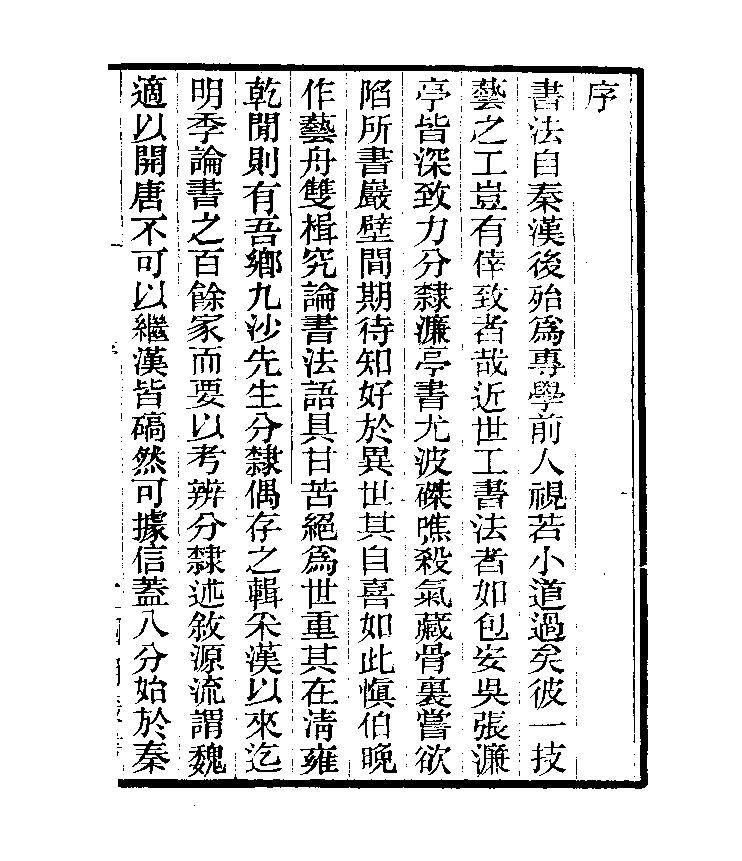 序
書法自秦漢後殆爲專學前人視若小道過矣彼一技
藝之工豈有倖致者哉近世工書法者如包安吳張濂
亭皆深致力分隸濂亭書尤波磔噍殺氣藏骨裏嘗欲
陷所書嚴壁間期待知好於異世其自喜如此愼伯晚
作藝舟雙楫究論書法語具甘苦絕爲世重其在淸雍
乾閒則有吾鄉九沙先生分隸偶存之輯釆漢以來迄
明季論書之百餘家而要以考辨分隸述敘源流謂魏
適以開唐不可以繼漢皆碻然可據信蓋八分始於秦